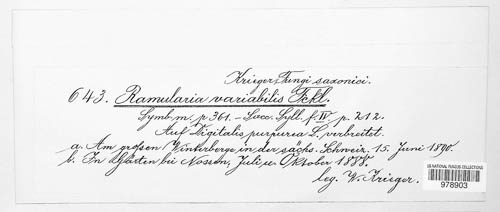 Krieger, Fungi saxonici.
643. Ramularia variabilis Fckl.
Symb. m. p. 361. – Sacc. Syll. f. IV p. 212.
Auf Digitalis purpurea L. verbreitet.
a. Am grossen Winterberge in der sächs. Schweiz. 15. Juni 1890.
b. In Gärten bei Nossen, Juli u. Oktober 1888.
leg. W. Krieger.
US NATIONAL FUNGUS COLLECTIONS
978903